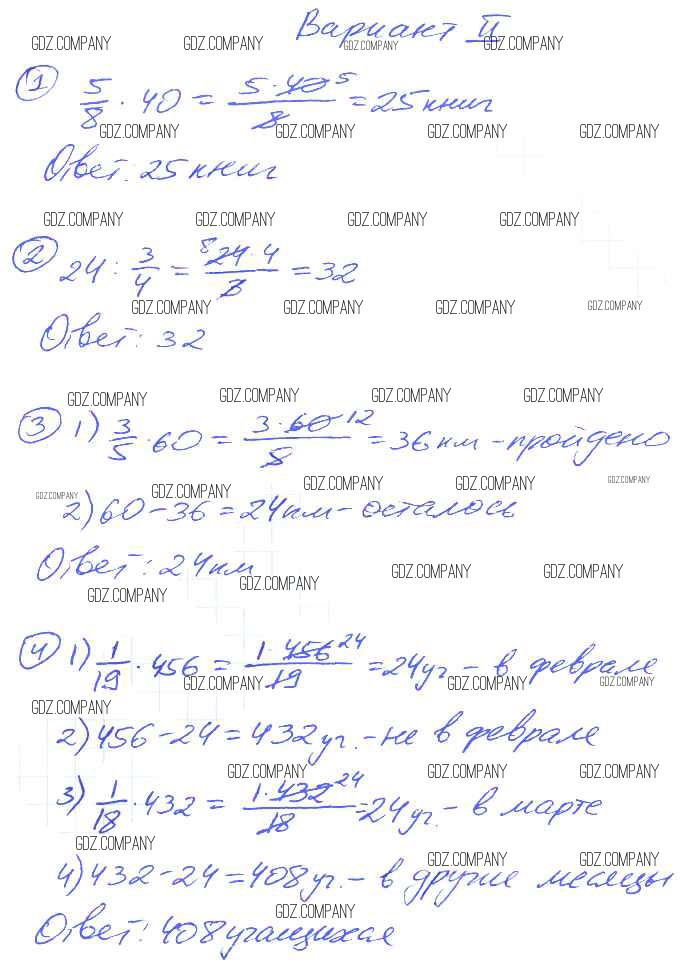 Вариант II
GDZ.COMPANY GDZ.COMPANY GDZ.COMPANY GDZ.COMPANY
1 5/8 · 40 = 5·40 5/8 = 25 книг
GDZ.COMPANY GDZ.COMPANY GDZ.COMPANY GDZ.COMPANY
Ответ: 25 книг
GDZ.COMPANY GDZ.COMPANY GDZ.COMPANY GDZ.COMPANY
2 24 : 3/4 = 8 24·4/3 = 32
GDZ.COMPANY GDZ.COMPANY GDZ.COMPANY GDZ.COMPANY
Ответ: 32
GDZ.COMPANY GDZ.COMPANY GDZ.COMPANY GDZ.COMPANY
3 1) 3/5 · 60 = 3·60 12/5 = 36 км - пройдено
GDZ.COMPANY GDZ.COMPANY GDZ.COMPANY GDZ.COMPANY GDZ.COMPANY
2) 60 - 36 = 24 км - осталось
Ответ: 24 км
GDZ.COMPANY GDZ.COMPANY GDZ.COMPANY GDZ.COMPANY
4 1) 1/19 · 456 = 1·456 24/19 = 24 уч. - в феврале
GDZ.COMPANY GDZ.COMPANY GDZ.COMPANY
GDZ.COMPANY
2) 456 - 24 = 432 уч. - не в феврале
GDZ.COMPANY GDZ.COMPANY GDZ.COMPANY
3) 1/18 · 432 = 1·432 24/18 = 24 уч. - в марте
GDZ.COMPANY
GDZ.COMPANY GDZ.COMPANY
4) 432 - 24 = 408 уч. - в другие месяцы
GDZ.COMPANY
Ответ: 408 учащихся